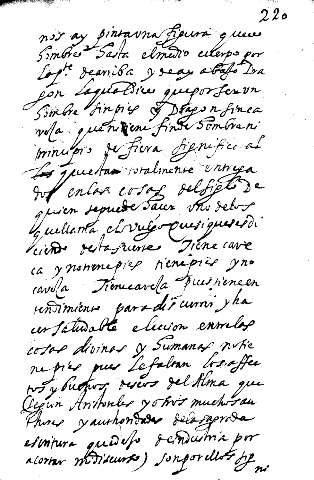 220
nos ay pinta una figura que es
hombre hasta el medio cuerpo por
la pte. de arriba y de ay abajo Dra
gon la qual dice que por ser un
hombre sin pies y Dragon sin ca
veza que no tiene fin de hombre ni
principio de fiera significa al
los que estan totalmente entrega
dos en las cosas del siglo De
quien se puede saver uno de los
que llama el vulgo que sigues di
ciendo desta suerte Tiene cave
ca y no tiene pies tiene pies y no
caveza Tiene caveza pues tiene en
tendimiento para discurrir y ha
cer saludable eleccion entre las
cosas divinas y humanas no tie
ne pies pues le faltan los affec
tos y buenos deseos del Alma que
(segun Aristoteles y otros muchos au
thores y authoridades de la sagrada
escritura que dejo de industria por
acortar mi discurso) son por ellos sig
ni